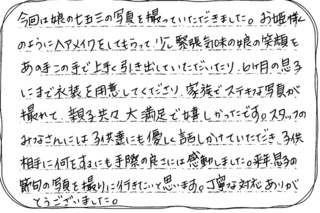 今回は娘の七五三の写真を撮っていただきました。お姫様
のようにヘアメイクをしてもらって少し緊張気味の娘の笑顔を
あの手この手で上手く引き出していただいたり、6ヶ月の息子
にまで衣装を用意してくださり、家族でステキな写真が
撮れて、親子共々大満足でうれしかったです。スタッフの
みなさんには子供達にも優しく話しかけていただき、子供
相手に何をするにも手際の良さには感動しました。来年、息子の
節句の写真を撮りに行きたいと思います。丁寧な対応ありが
とうございました。